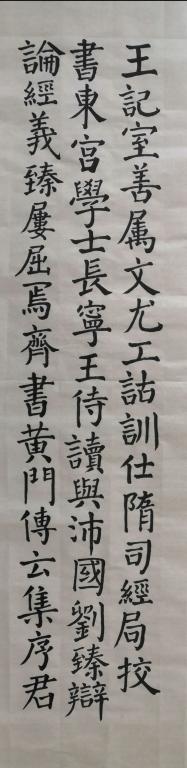 王記室善属文尤工詁訓仕隋司經局挍
書東宮學士長寧王侍讀與沛國劉臻辯
論經義臻屢屈焉齊書黄門傳云集序君